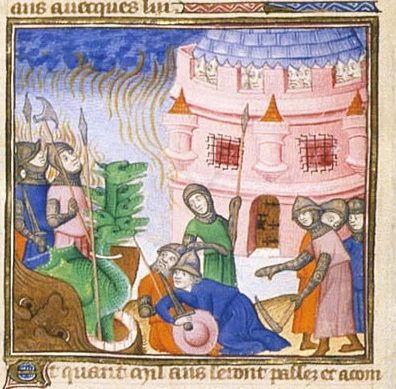 ans auecques lui
Et quant mil ans seront passez et acom